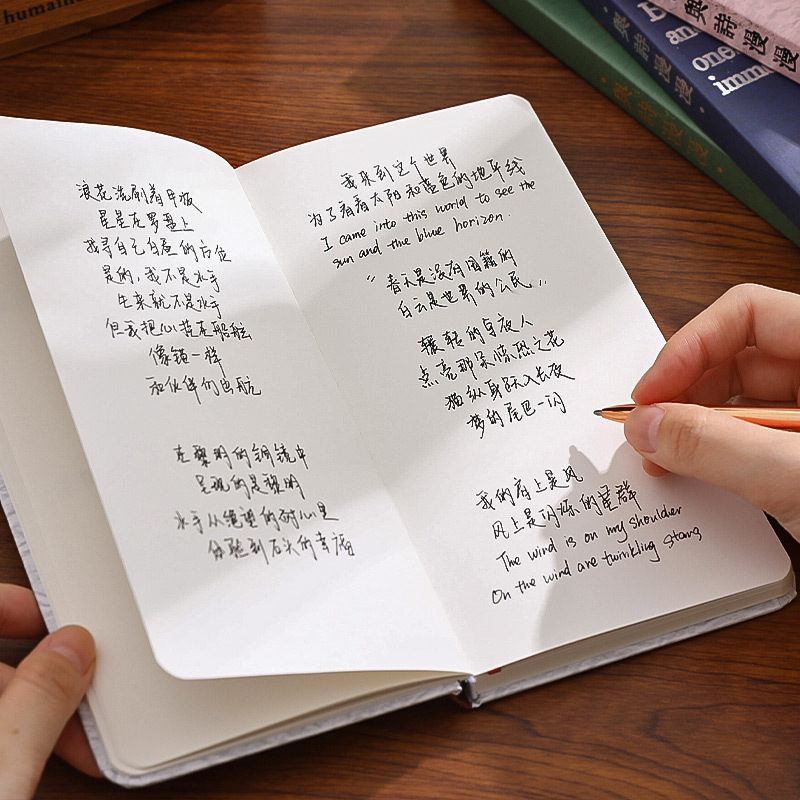 浪花洗刷着甲板
星星在罗盘上
找寻自己白昼的方位
是的，我不是水手
生来就不是水手
但我把心挂在船舷
像锚一样
和伙伴们出航
在黎明的铜镜中
呈现的是黎明
水手从绝望的耐心里
体验到石头的幸福
我来到这个世界
为了看看太阳和蓝色的地平线
I came into this world to see the
sun and the blue horizon.
"春天是没有国籍的
白云是世界的公民"
辗转的穿夜人
点亮那朵惊恐之花
猫纵身跃入长夜
梦的尾巴一闪
我的肩上是风
风上是闪烁的星群
The wind is on my shoulder
On the wind are twinkling stars
humain
奥诗漫漫
奥诗漫漫
奥诗漫漫
an
one
imm